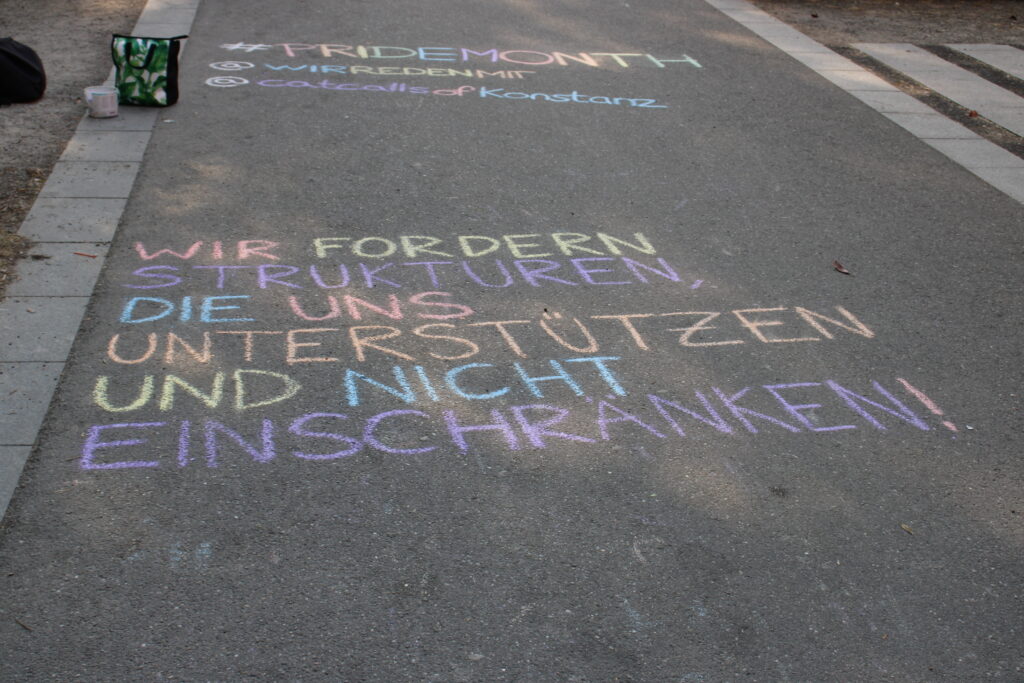 #PRIDEMONTH
@WIRREDENMIT
@catcallsofKonstanz
WIR FORDERN
STRUKTUREN,
DIE UNS
UNTERSTÜTZEN
UND NICHT
EINSCHRÄNKEN!